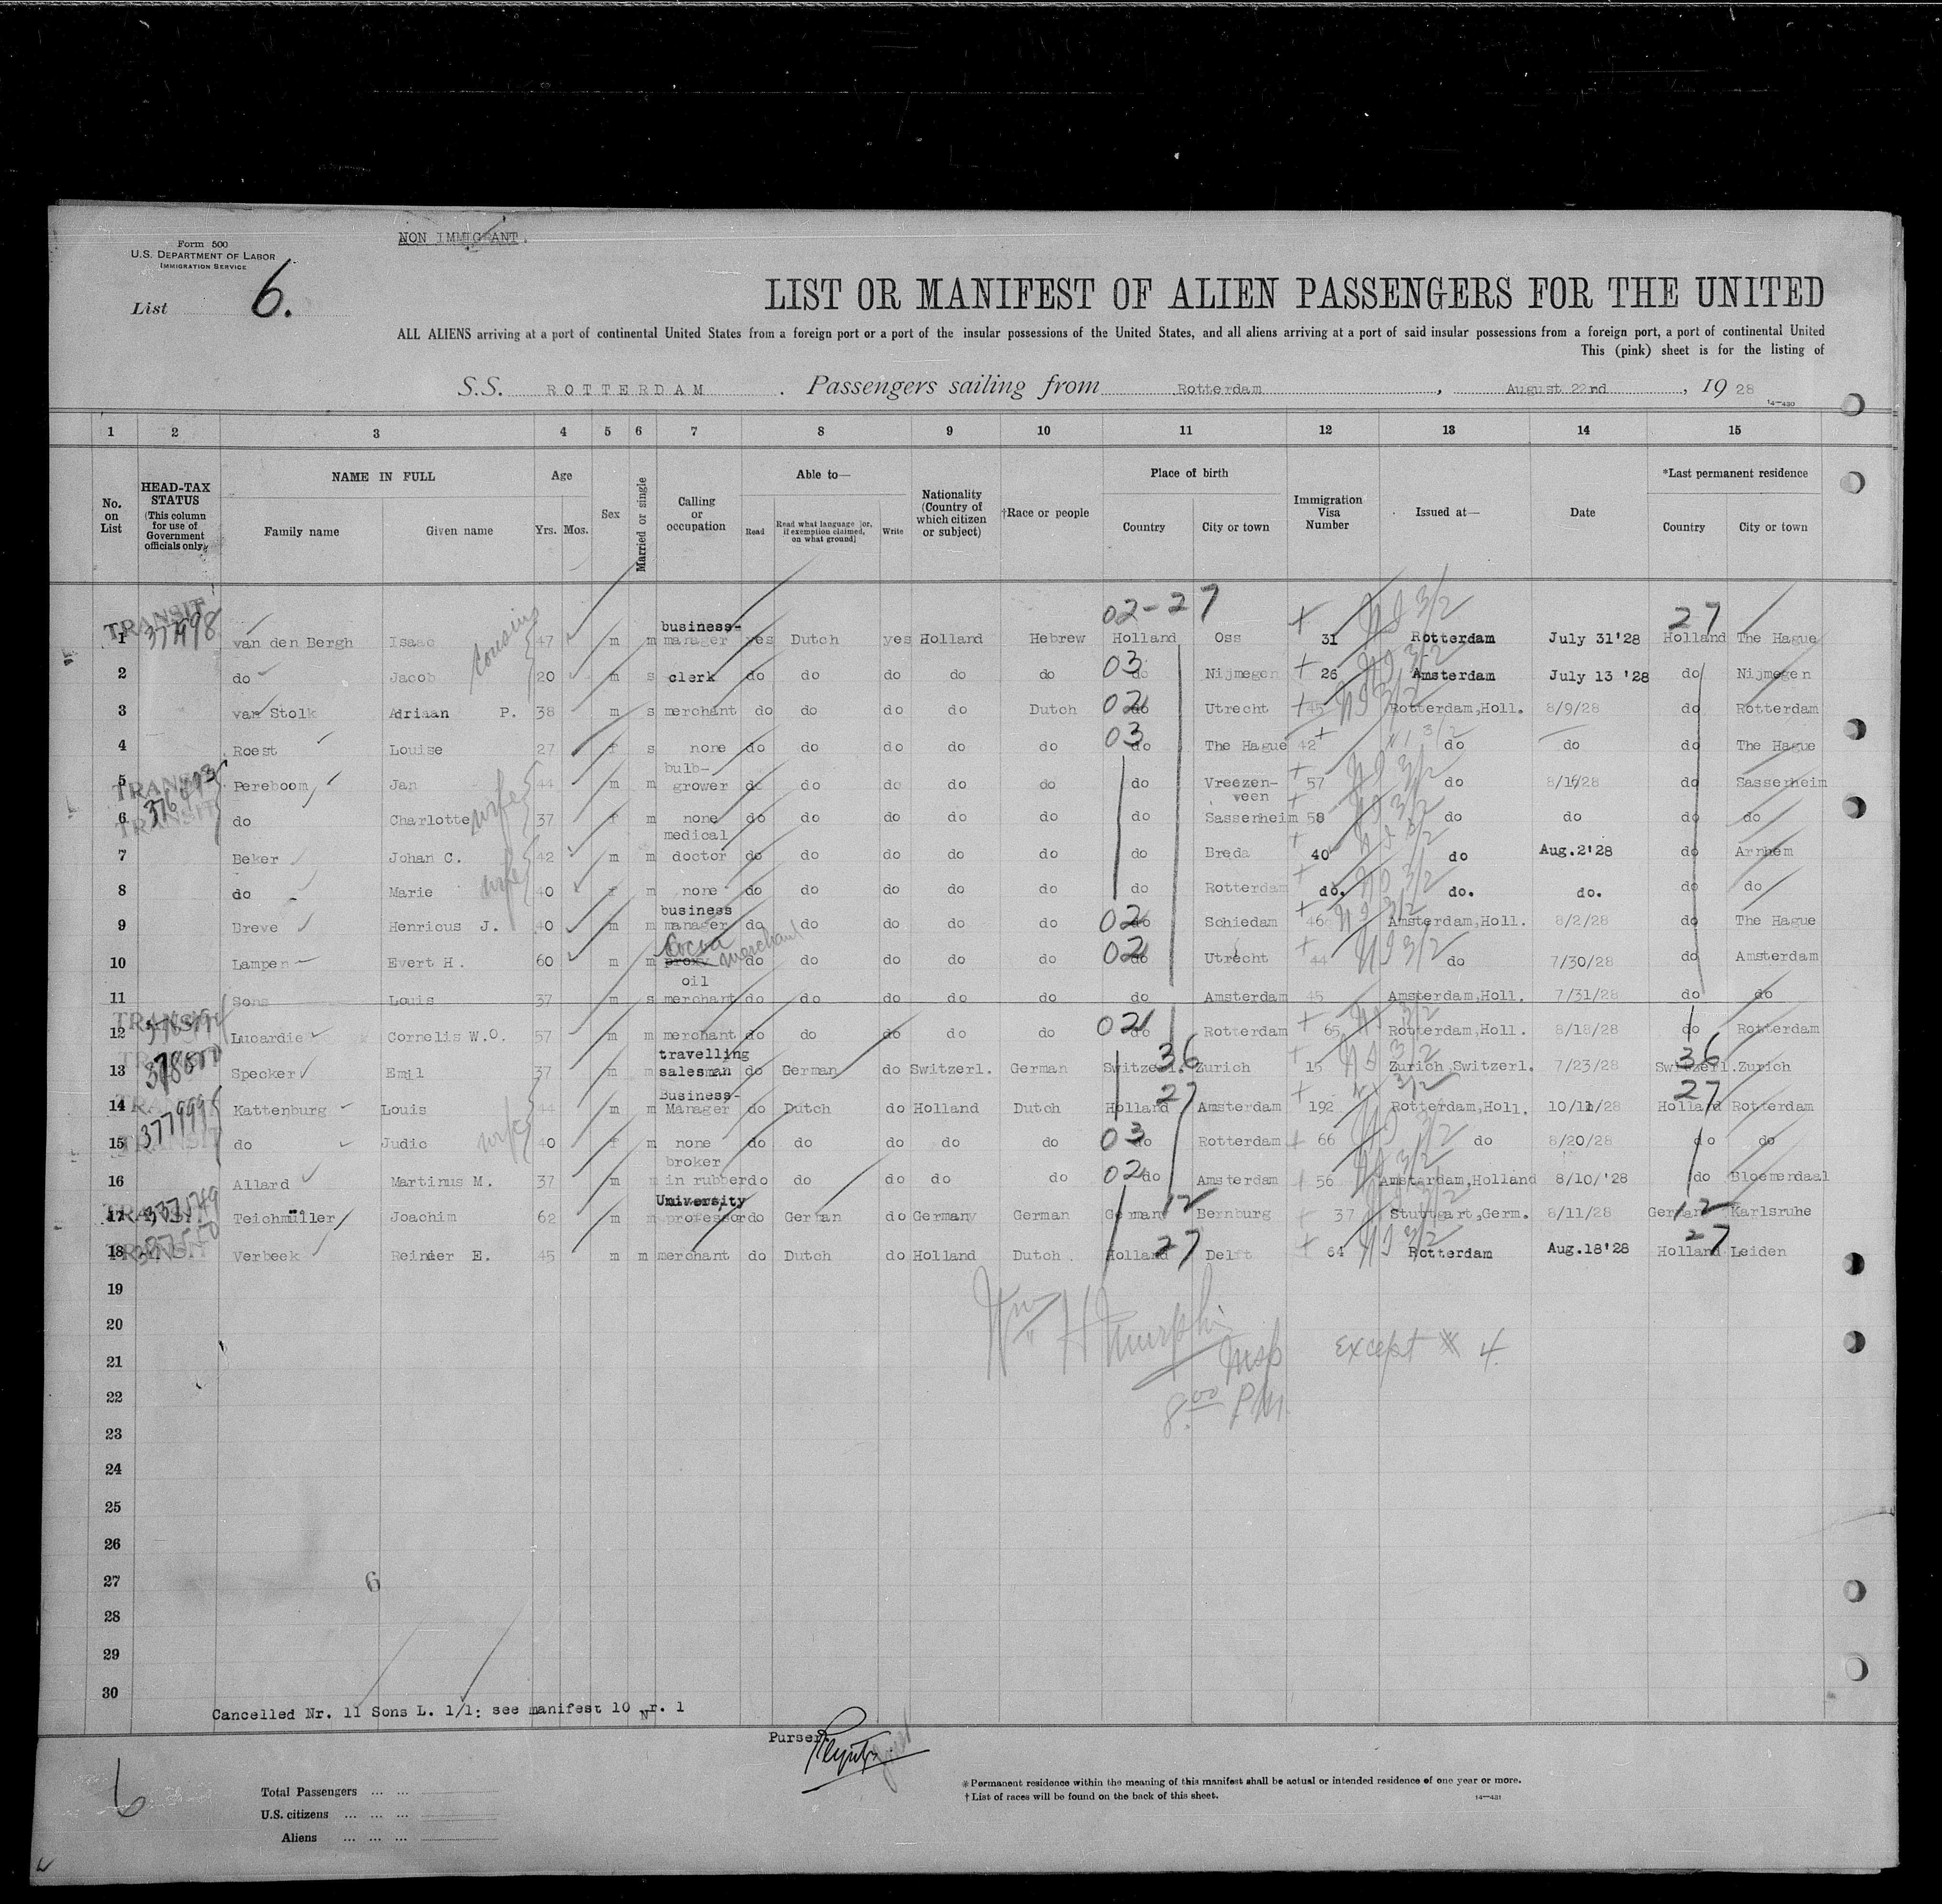 NON IMMIGRANT.
Form 500
U.S. DEPARTMENT OF LABOR
IMMIGRATION SERVICE
List 6.
LIST OR MANIFEST OF ALIEN PASSENGERS FOR THE UNITED
ALL ALIENS arriving at a port of continental United States from a foreign port or a port of the insular possessions of the United States, and all aliens arriving at a port of said insular possessions from a foreign port, a port of continental United
This (pink) sheet is for the listing of
S.S. ROTTERDAM. Passengers sailing from Rotterdam, August 22nd, 19 28
14-430
1 2 3 4 5 6 7 8 9 10 11 12 13 14 15
No. on List
HEAD-TAX STATUS (This column for use of Government officials only)
NAME IN FULL Family name Given name
Age Yrs. Mos.
Sex
Married or single
Calling or occupation
Able to— Read Read what language [or, if exemption claimed, on what ground] Write
Nationality (Country of which citizen or subject)
†Race or people
Place of birth Country City or town
Immigration Visa Number
Issued at—
Date
*Last permanent residence Country City or town
02-27 27
1 TRANSIT van den Bergh Isaac cousins 47 m m business-manager yes Dutch yes Holland Hebrew Holland Oss 31 Rotterdam July 31'28 Holland The Hague
2 do Jacob 20 m s clerk do do do do do 03 do Nijmegen 26 Amsterdam July 13 '28 do Nijmegen
3 van Stolk Adriaan P. 38 m s merchant do do do do Dutch 02 do Utrecht 45 Rotterdam,Holl. 8/9/28 do Rotterdam
4 Roest Louise 27 f s none do do do do do 03 do The Hague 42 do do do The Hague
5 TRANSIT Pereboom Jan 44 m m bulb-grower do do do do do do Vreezen-veen 57 do 8/16/28 do Sassenheim
6 TRANSIT do Charlotte wife 37 f m none do do do do do do Sassenheim 58 do do do do
7 Beker Johan C. 42 m m medical doctor do do do do do do Breda 40 do Aug.2'28 do Arnhem
8 do Marie wife 40 f m none do do do do do do Rotterdam do. do. do. do do
9 Breve Henricus J. 40 m m business manager do do do do do 02 do Schiedam 46 Amsterdam,Holl. 8/2/28 do The Hague
10 Lampen Evert H. 60 m m proxy Cocoa merchant do do do do do 02 do Utrecht 44 do 7/30/28 do Amsterdam
11 Sons Louis 37 m s oil merchant do do do do do do Amsterdam 45 Amsterdam,Holl. 7/31/28 do do
12 TRANSIT Lucardie Cornelis W.O. 57 m m merchant do do do do do 02 do Rotterdam 65 Rotterdam,Holl. 8/18/28 do Rotterdam
13 Specker Emil 37 m m travelling salesman do German do Switzerl. German Switzerl. 36 Zurich 15 Zurich,Switzerl. 7/23/28 Switzerl. 36 Zurich
14 377999 Kattenburg Louis 44 m m Business-Manager do Dutch do Holland Dutch Holland 27 Amsterdam 192 Rotterdam,Holl. 10/11/28 Holland 27 Rotterdam
15 TRANSIT do Judic wife 40 f m none do do do do do 03 do Rotterdam 66 do 8/20/28 do do
16 Allard Martinus M. 37 m m broker in rubber do do do do do 02 do Amsterdam 56 Amsterdam,Holland 8/10/'28 do Bloemerdaal
17 TRANSIT Teichmüller Joachim 62 m m University professor do German do Germany German Germany 12 Bernburg 37 Stuttgart,Germ. 8/11/28 Germany 12 Karlsruhe
18 TRANSIT Verbeek Reinder E. 45 m m merchant do Dutch do Holland Dutch. Holland 27 Delft 64 Rotterdam Aug.18'28 Holland 27 Leiden
19
20
Wm H Murphy
21
Insp Except # 4
22
8.00 P.M.
23
24
25
26
27
6
28
29
30
Cancelled Nr. 11 Sons L. 1/1: see manifest 10 Nr. 1
Purser.
6
Total Passengers
U.S. citizens
Aliens
*Permanent residence within the meaning of this manifest shall be actual or intended residence of one year or more.
†List of races will be found on the back of this sheet.
14-431